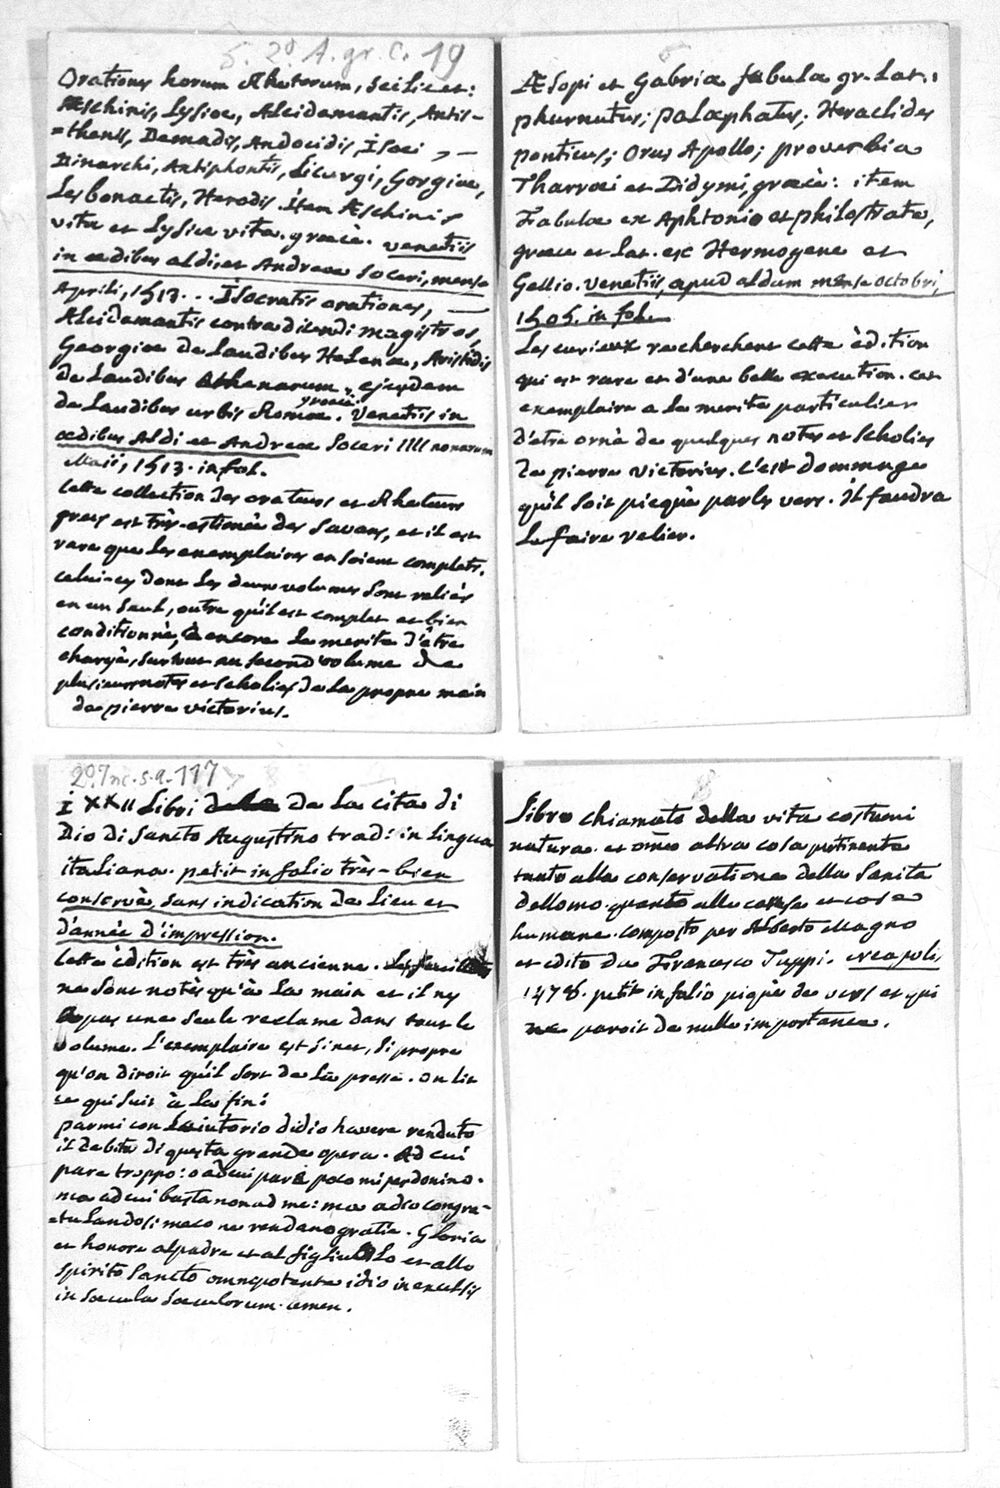 5. 2° A. gr. C. 19
Orationes horum Rhetorum, scilicet:
Æschinis, Lysiæ, Alcidamantis, Antis-
=thenis, Demadis, Andocidis, Isæi, —
Dinarchi, Antiphontis, Licurgi, Gorgiæ,
Lesbonactis, Herodis. Item Æschinis
vita et Lysiæ vita. græcè. Venetiis
in ædibus aldi, et Andreæ Soceri, mense
Aprili, 1513... Isocratis orationes, —
Alcidamantis contra dicendi magistros,
Georgiæ de Laudibus Helenæ, Aristidis
de Laudibus Athenarum, ejusdem
de Laudibus urbis Romæ. græcè. Venetiis in
ædibus Aldi et Andreæ Soceri IIII nonarum
Maii, 1513. in fol.
Cette collection des orateurs et Rheteurs
grecs est très-estimée des Savans, et il est
rare que les exemplaires en soient complets.
celui-cy dont les deux volumes sont reliés
en un seul, outre qu'il est complet et bien
conditionné, a encore le merite d'être
chargé, surtout au second volume de
plusieurs notes et scholies de la propre main
de pierre victorius.
6
Æsopi et Gabriæ fabulæ gr. Lat.;
phurnutus; palæphatus; Heraclides
ponticus; Orus Apollo; proverbia
Tharræi et Didymi, græcè: item
Fabulæ ex Aphtonio et philostrate,
græce et Lat. ex Hermogene et
Gellio. Venetiis, apud aldum mense octobri,
1505. in fol.
Les curieux recherchent cette édition
qui est rare et d'une belle execution. cet
exemplaire a le merite particulier
d'être orné de quelques notes et scholies
de pierre victorius. C'est dommage
qu'il soit picqué par les vers. il faudra
le faire relier.
2° Inc. s. a. 117
I XXII Libri de La cita di
Dio di Sancto Augustino trad: in Lingua
italiana. petit in folio très-bien
conservé, sans indication de Lieu et
d'année d'impression.
Cette édition est très ancienne. Les feuillets
ne sont notés qu'à La main et il n'y
a pas une seule reclame dans tout le
volume. L'exemplaire est si net, si propre
qu'on diroit qu'il sort de La presse. on lit
ce qui suit à La fin:
parmi con Laiutorio didio havere renduto
il debito di questa grande opera. Ad cui
pare troppo: o ad cui pare poco mi perdonino.
ma ad cui basta non ad me: ma adio congra-
=tulandosi meco ne rendano gratie. Gloria
et honore al padre et al figliuolo et allo
spirito Sancto omnepotente idio in excelsis
in sæcula sæculorum. amen.
8
Libro chiamato della vita costumi
natura. et omeo altra cosa pertinente
tanto alla conservatione della Sanita
dellomo. quanto alle cause et cose
humane. composto per Alberto Magno
et edito da Francesco Tuppi. Neapoli,
1478. petit in folio piqué de vers et qui
ne paroit de nulle importance.